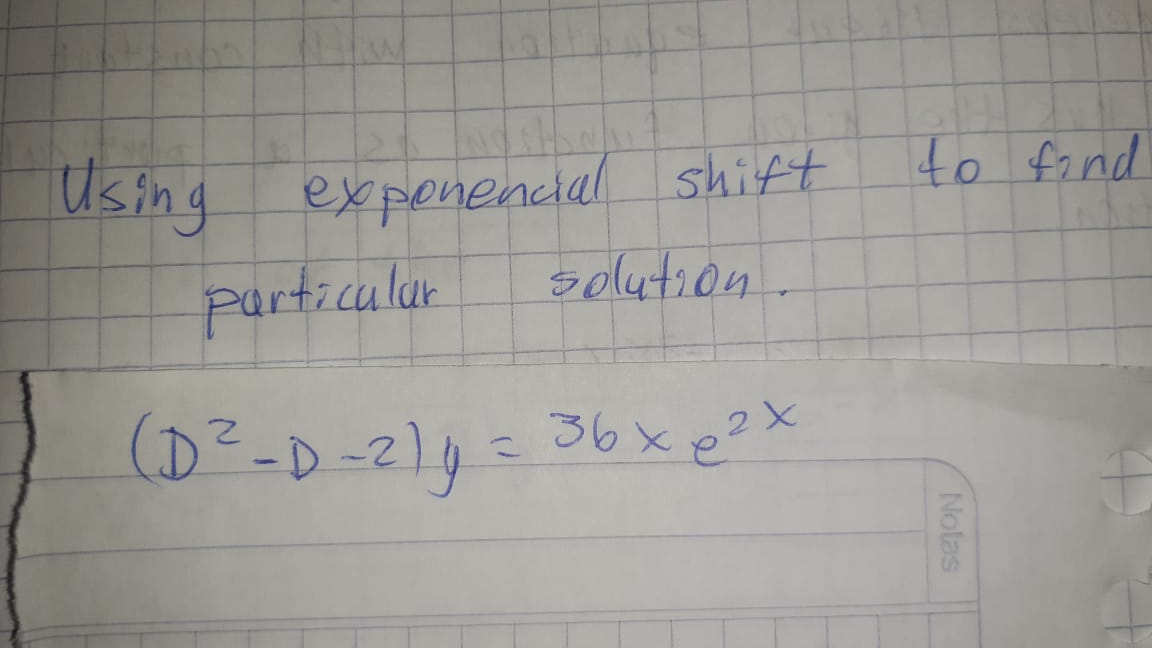 Using exponencial shift to find
particular solution.
(D² - D - 2) y = 36 x e^{2x}
Notas